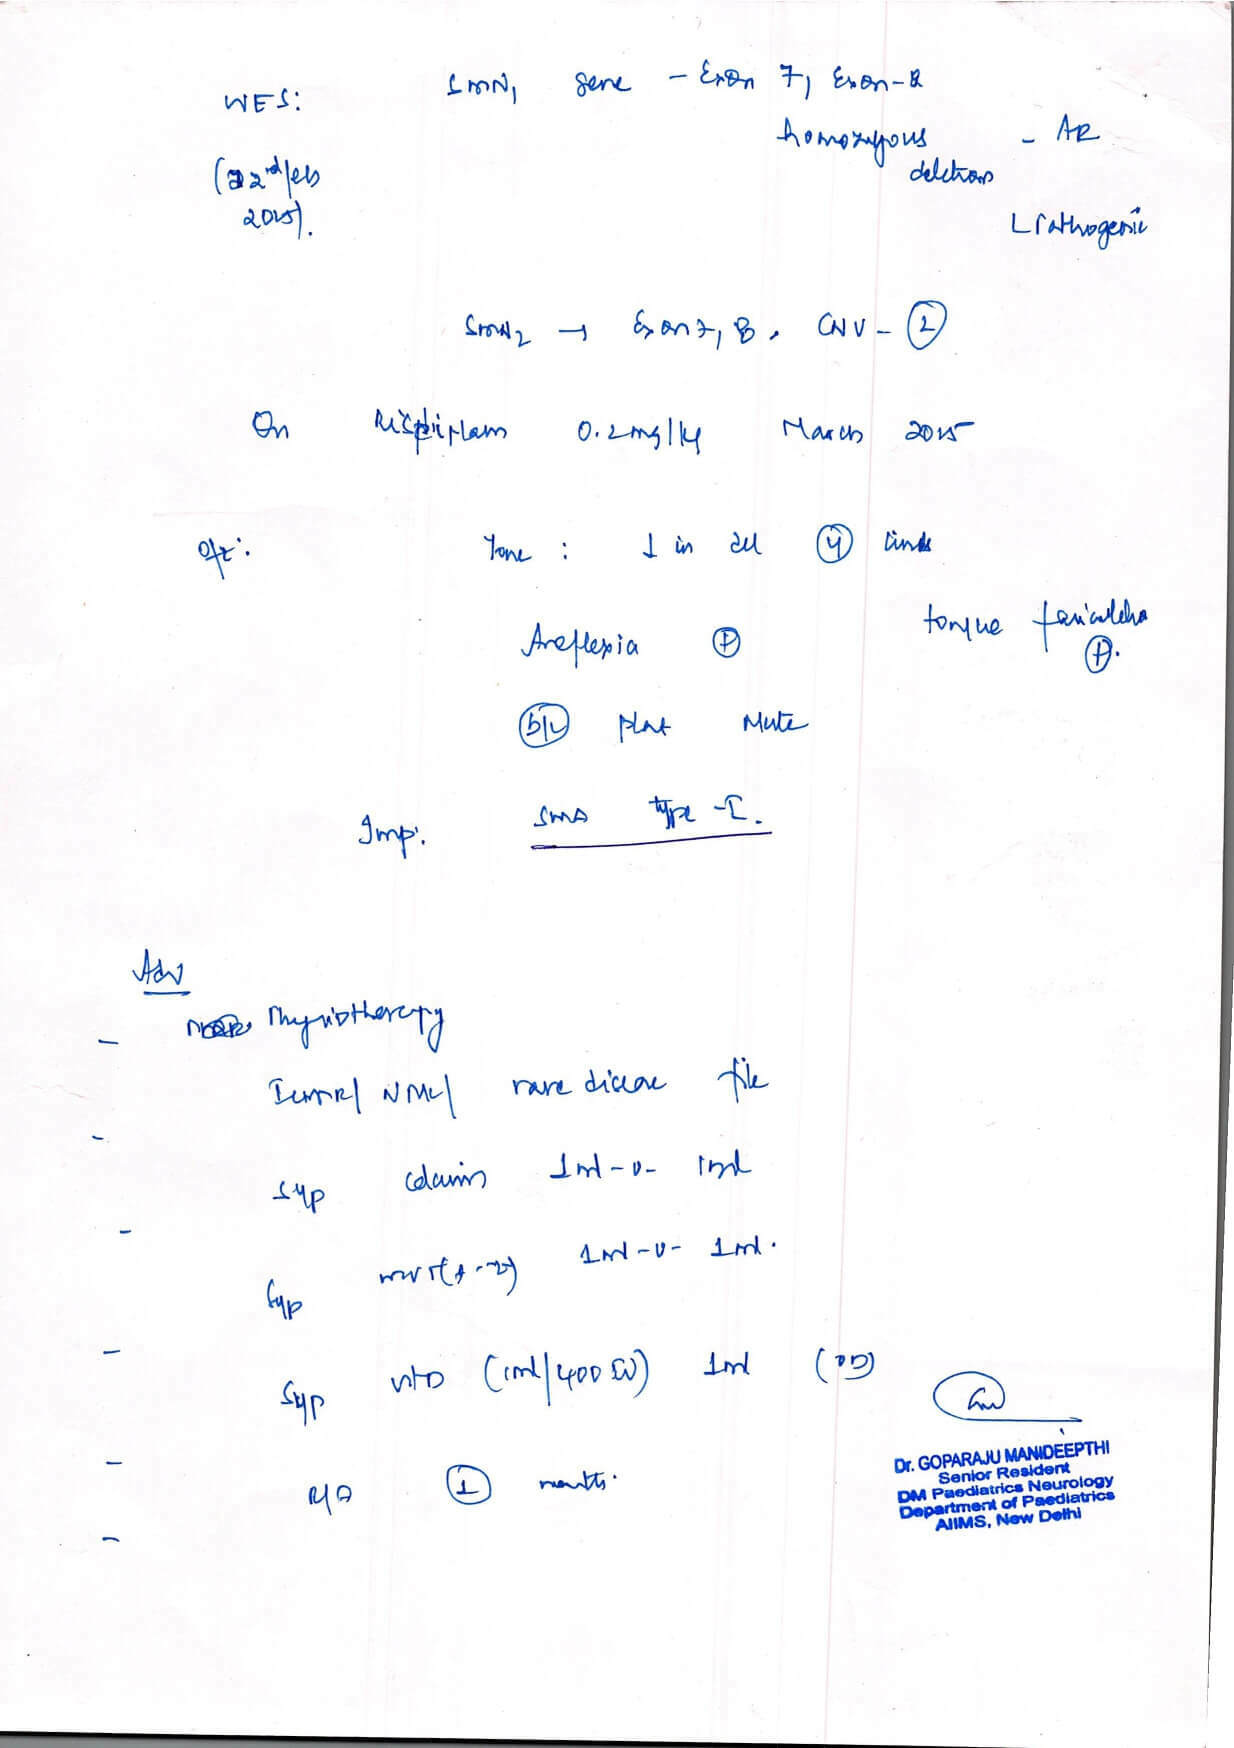 WES: SMN1 gene - Exon 7, Exon-8
homozygous - AR
(22nd Feb deletion
2025). Pathogenic
SMN2 → Exon 7, 8, CNV - 2
On Risdiplam 0.2mg/kg March 2025
O/E: Tone: ↓ in all 4 limbs
tongue fasiculation
Areflexia P P.
b/L plant Mute
Imp: SMA type-I.
Adv
- Physiotherapy
- rare disease file
- Syp 1ml-0-1ml
- Syp 1ml-0-1ml.
- Syp VitD (1ml/400 IU) 1ml (OD)
- R/A 1 months.
Dr. GOPARAJU MANIDEEPTHI
Senior Resident
DM Paediatrics Neurology
Department of Paediatrics
AIIMS, New Delhi